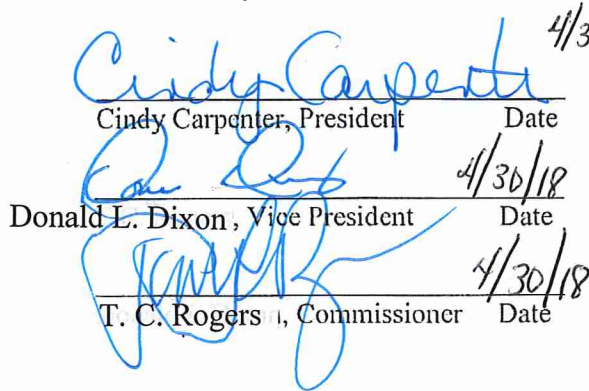 4/3
Cindy Carpenter
Cindy Carpenter, President Date
4/30/18
Donald L. Dixon, Vice President Date
4/30/18
T. C. Rogers, Commissioner Date